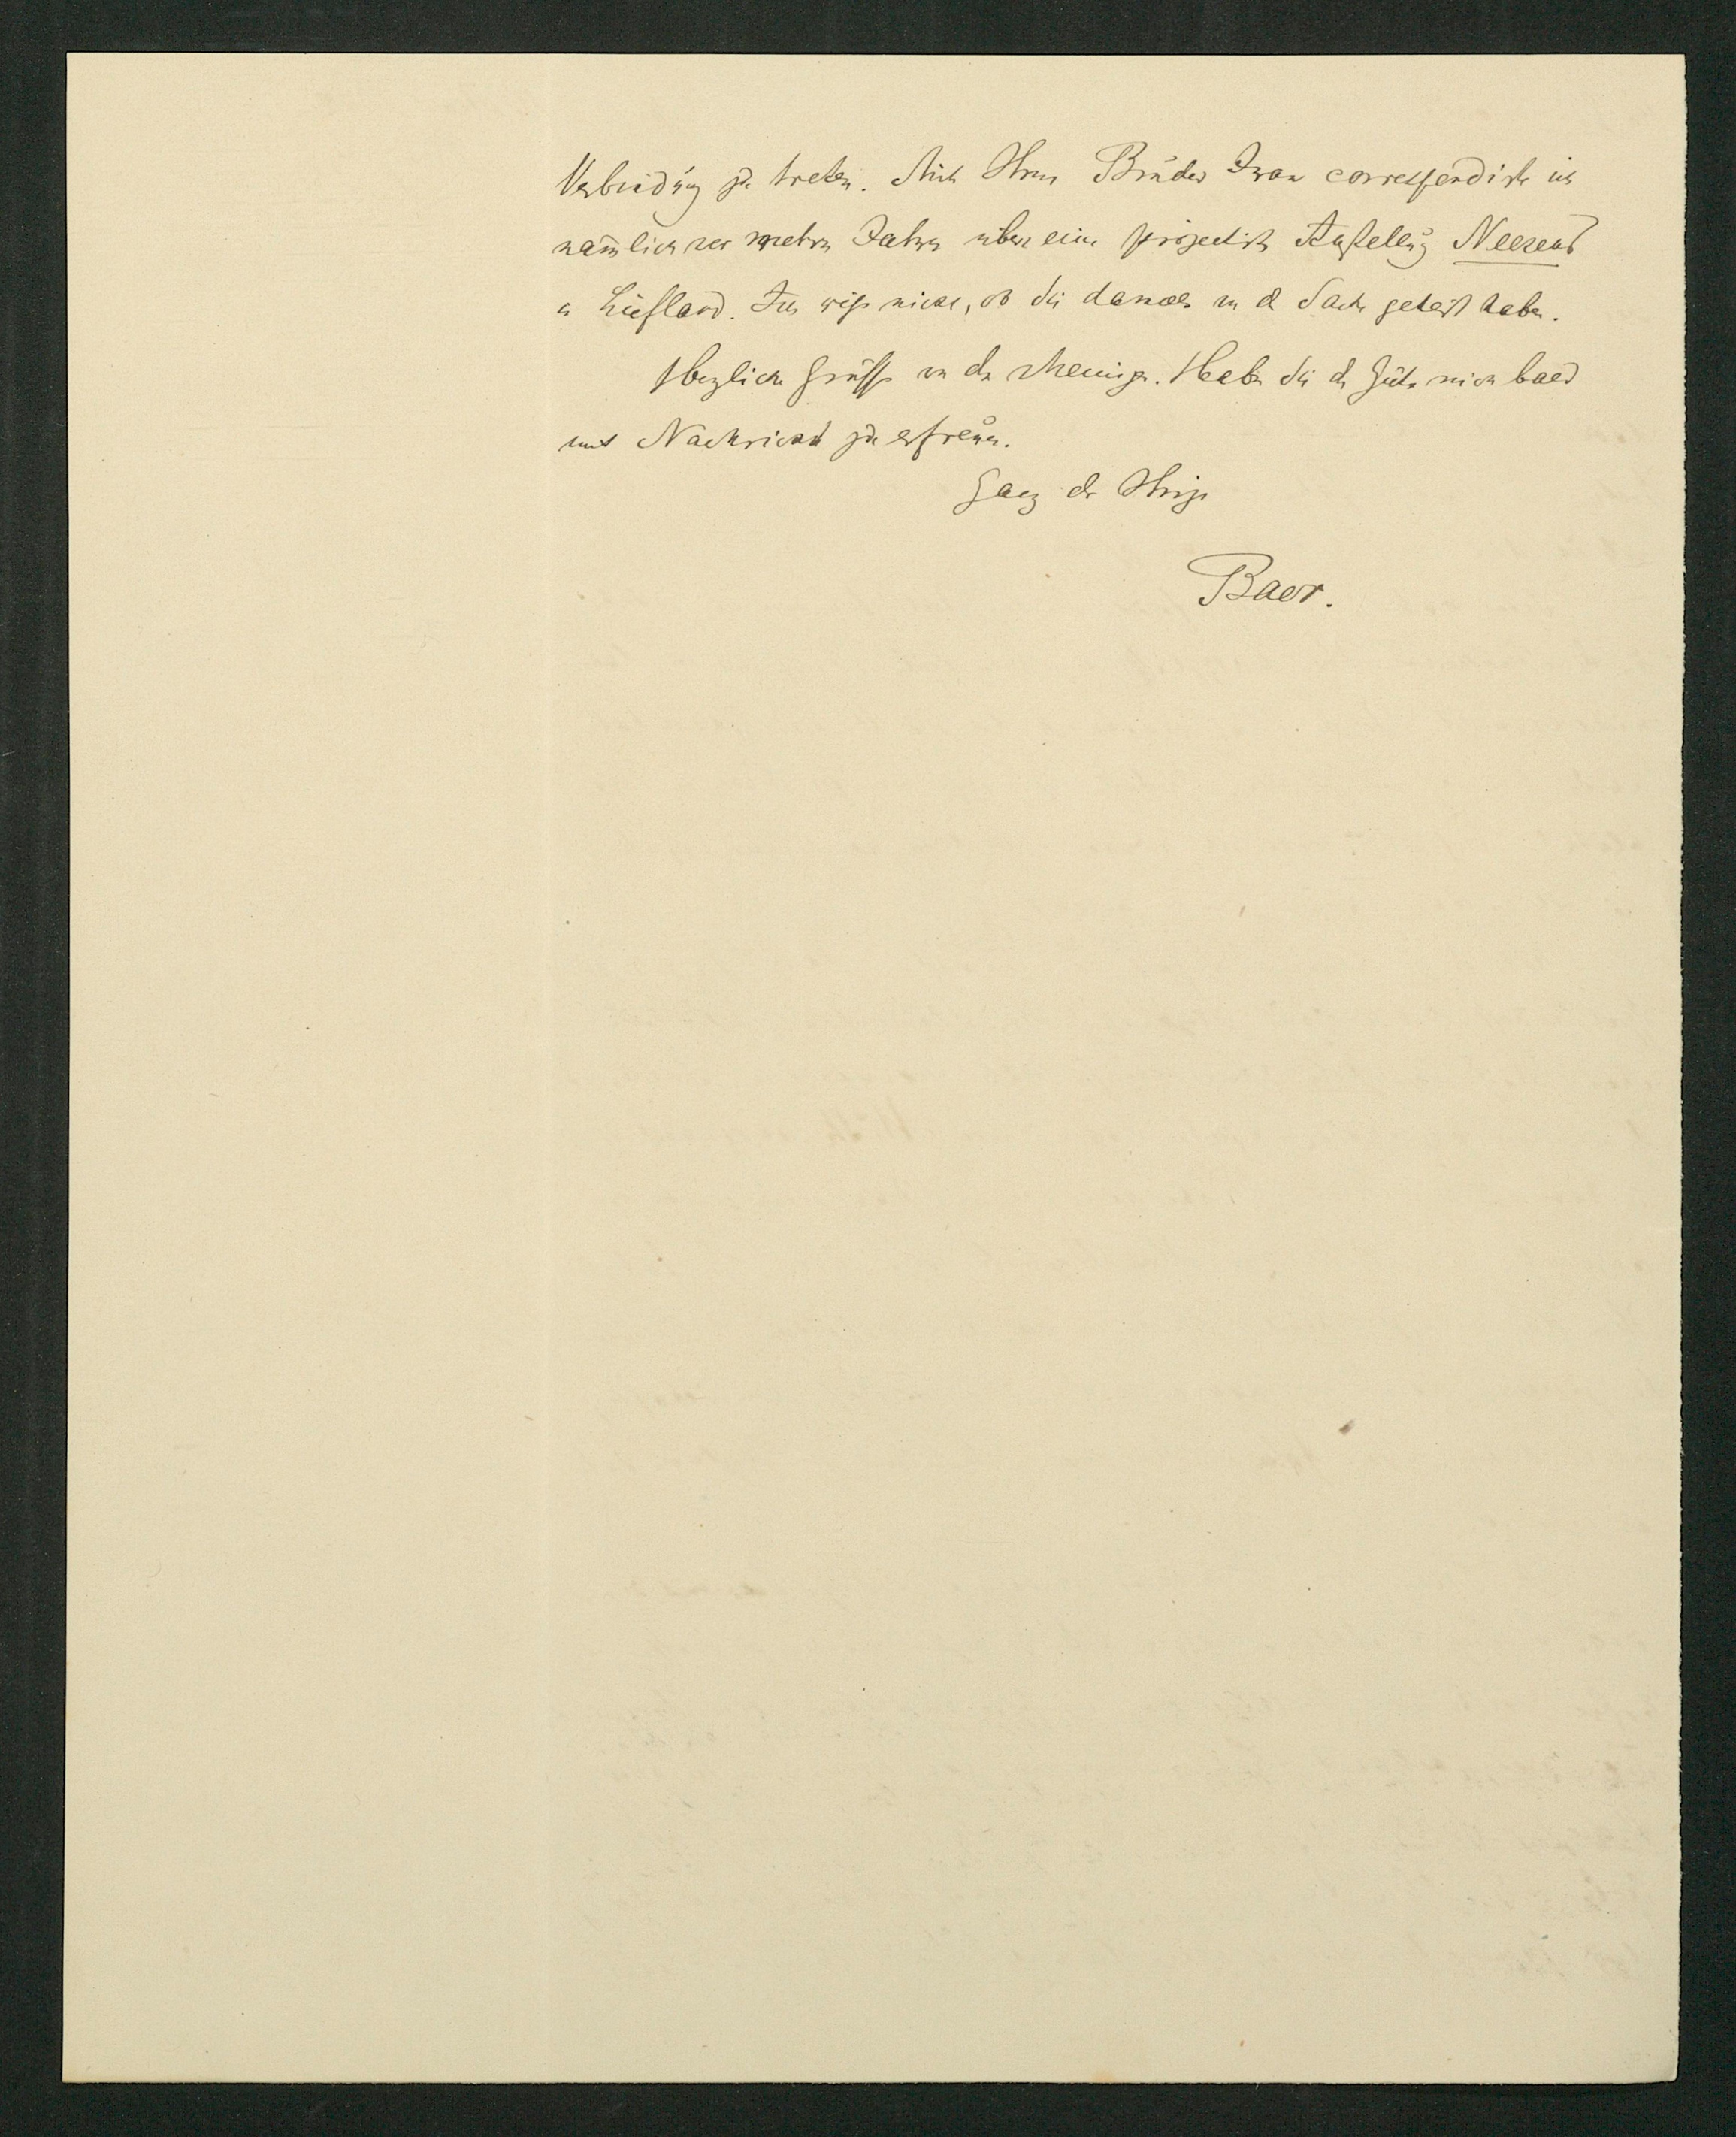 Verbindung zu treten. Mit Ihrem Bruder Iwan correspondirte ich
nämlich vor mehrern Jahren über eine projectirte Anstellung
in Liefland. Ich weiss nicht, ob Sie damals an der Sache geheilt haben.
Herzliche Grüsse an die Meinigen. Haben Sie die Güte mich bald
mit Nachricht zu erfreuen.
Ganz der Ihrige
Baer.